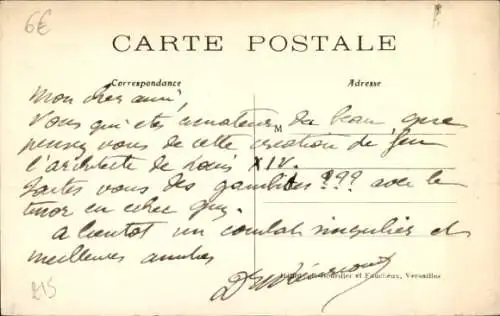 6€
CARTE POSTALE
Correspondance
Adresse
Mon cher ami,
Vous qui êtes amateur du beau que
M
pensez vous de cette création de feu
l'architecte de Louis XIV.
Faites vous des gambits ??? avec le
en echec
a bientot un combat singulier et
meilleures amitiés
et Faucheux, Versailles
215